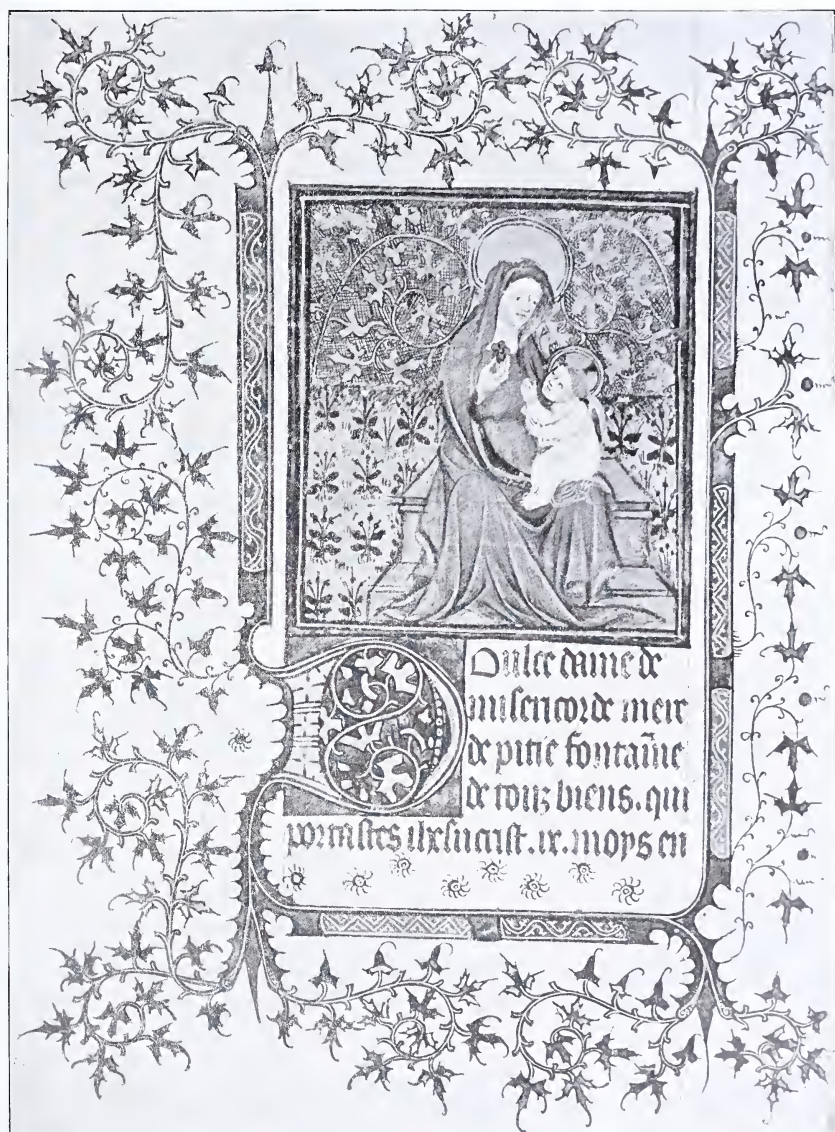 Oulce dame de
misericorde mere
de pitie fontaĩne
de touz biens. qui
portastes ihesucrist .ix. moys en